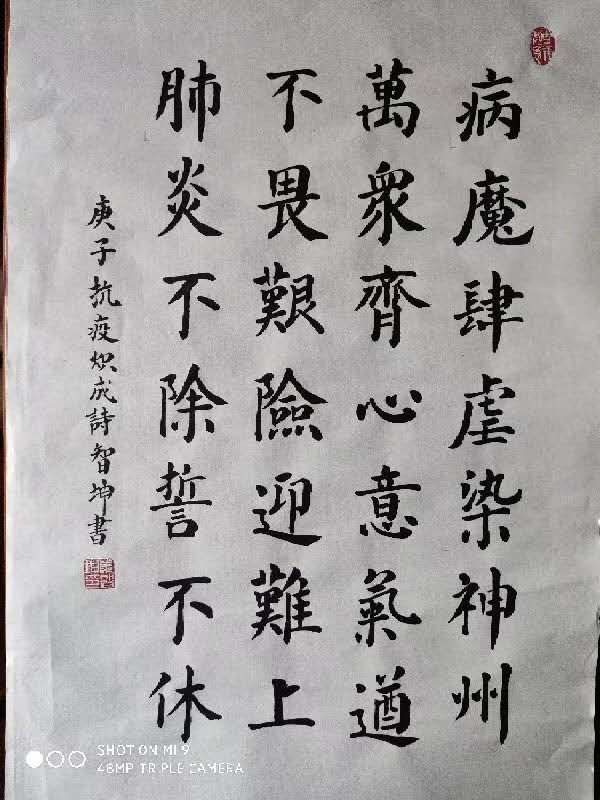 病魔肆虐染神州
萬眾齊心意氣遒
不畏艱險迎難上
肺炎不除誓不休
庚子抗疫炽成詩智坤書
SHOT ON MI 9
48MP TRIPLE CAMERA